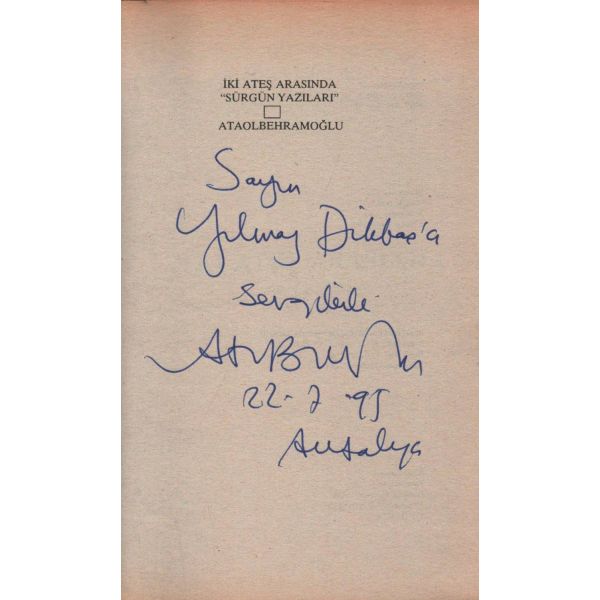 İKİ ATEŞ ARASINDA
"SÜRGÜN YAZILARI"
ATAOLBEHRAMOĞLU
Sayın
Yılmaz Dikbaş'a
Sevgilerle
22-7-95
Antalya